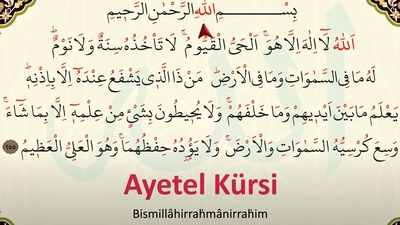 بِسْــــــــمِ اللهِ الرَّحْمٰنِ الرَّحِيمِ
اَللهُ لَٓا اِلٰهَ اِلَّا هُوَۚ اَلْحَيُّ الْقَيُّومُۚ لَا تَأْخُذُهُ سِنَةٌ وَلَا نَوْمٌۜ
لَهُ مَا فِي السَّمٰوَاتِ وَمَا فِي الْاَرْضِۜ مَنْ ذَا الَّذ۪ي يَشْفَعُ عِنْدَهُٓ اِلَّا بِاِذْنِه۪ۜ
يَعْلَمُ مَا بَيْنَ اَيْد۪يهِمْ وَمَا خَلْفَهُمْۚ وَلَا يُح۪يطُونَ بِشَيْءٍ مِنْ عِلْمِه۪ٓ اِلَّا بِمَا شَٓاءَۚ
وَسِعَ كُرْسِيُّهُ السَّمٰوَاتِ وَالْاَرْضَۚ وَلَا يَؤُ۫دُهُ حِفْظُهُمَاۚ وَهُوَ الْعَلِيُّ الْعَظ۪يمُ ٢٥٥
Ayetel Kürsi
Bismillâhirrahmânirrahim